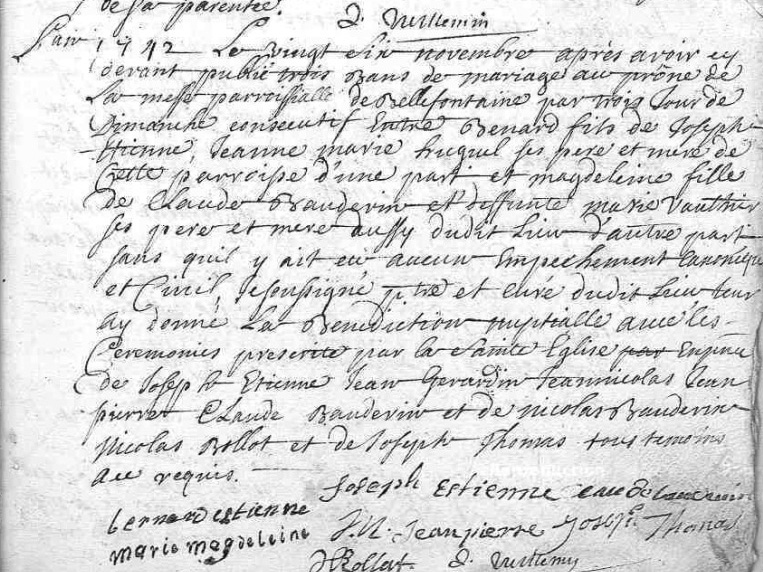 de sa parentée. J. Vuillemin
L'an 1742 Le vingt six novembre après avoir cy
devant publié trois Bans de mariage au prône de
La messe parroissialle de Bellefontaine par trois Jour de
Dimanche consecutif Entre Benard fils de Joseph
Etienne, Jeanne marie hucquel ses pere et mere de
Cette parroisse d'une part et magdeleine fille
de Claude Bauderin et deffunte marie Vauthier
ses pere et mere aussy dudit Lieu d'autre part
sans quil y ait eü aucun Empechement Canonique
et Civil, Je soussigné ptre et curé dudit Lieu leur
ay donné La Benediction nuptialle avec les
Ceremonies prescrite par la Sainte Eglise par En pnce
de Joseph Etienne Jean Gerardin Jeannicolas Jean
pierre Claude Bauderin et de nicolas Bauderin
Nicolas Bollot et de Joseph Thomas tous temoins
ace requis.
Joseph Estienne Caude bauderin
bernard estienne
J.N. Jeanpierre Joseph Thomas
marie magdeleine
NBollot J. Vuillemin